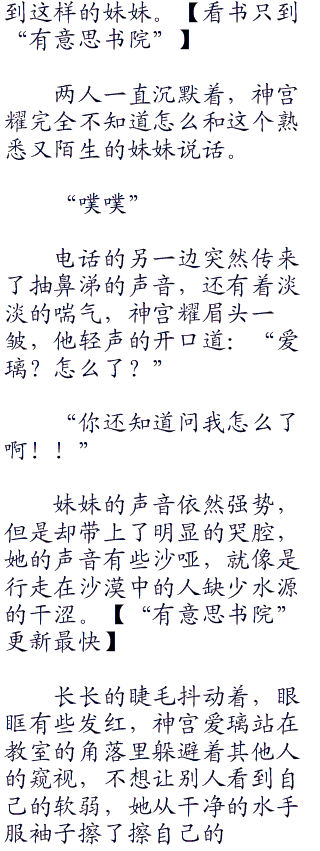 到这样的妹妹。【看书只到
“有意思书院”】
两人一直沉默着，神宫
耀完全不知道怎么和这个熟
悉又陌生的妹妹说话。
“噗噗”
电话的另一边突然传来
了抽鼻涕的声音，还有着淡
淡的喘气，神宫耀眉头一
皱，他轻声的开口道：“爱
璃？怎么了？”
“你还知道问我怎么了
啊！！”
妹妹的声音依然强势，
但是却带上了明显的哭腔，
她的声音有些沙哑，就像是
行走在沙漠中的人缺少水源
的干涩。【“有意思书院”
更新最快】
长长的睫毛抖动着，眼
眶有些发红，神宫爱璃站在
教室的角落里躲避着其他人
的窥视，不想让别人看到自
己的软弱，她从干净的水手
服袖子擦了擦自己的